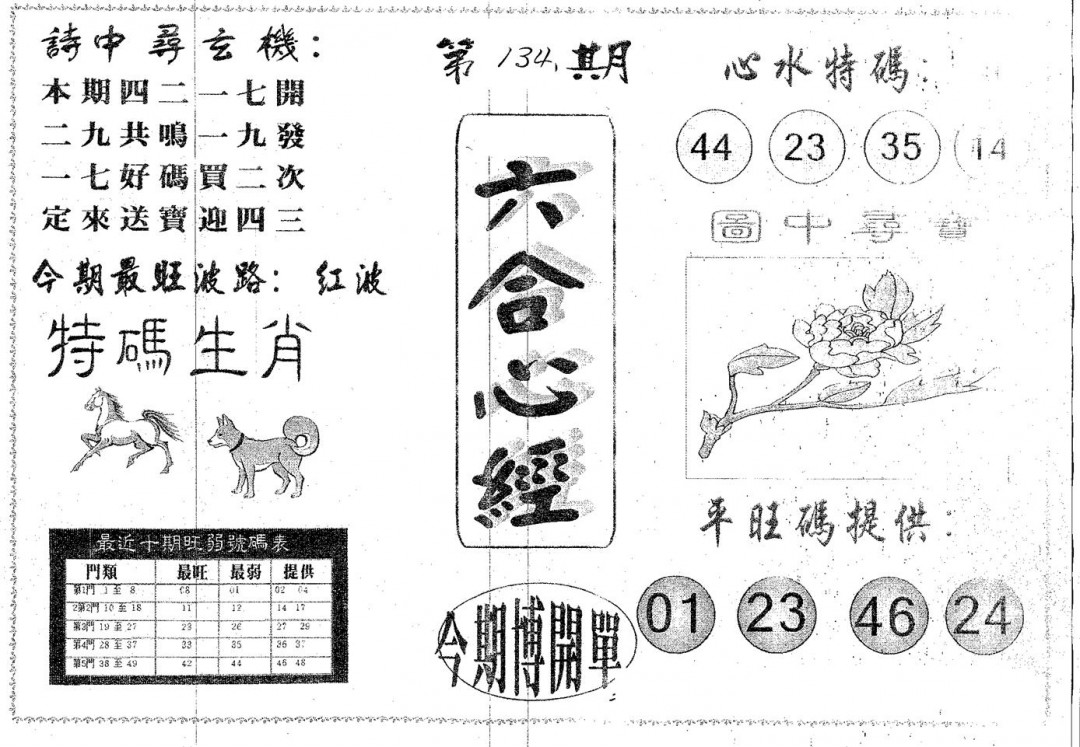 詩中尋玄機：
本期四二一七開
二九共鳴一九發
一七好碼買二次
定來送寶迎四三
今期最旺波路：紅波
特碼生肖
最近十期旺弱號碼表
門類 最旺 最弱 提供
第1門 1 至 8 08 01 02 04
2第2門 10 至 18 11 12 14 17
第3門 19 至 27 23 26 27 26
第4門 28 至 37 33 35 36 37
第5門 38 至 49 42 44 46 48
第134期
六合心經
今期博開單
心水特碼：
44 23 35 14
圖中尋寶
平旺碼提供：
01 23 46 24